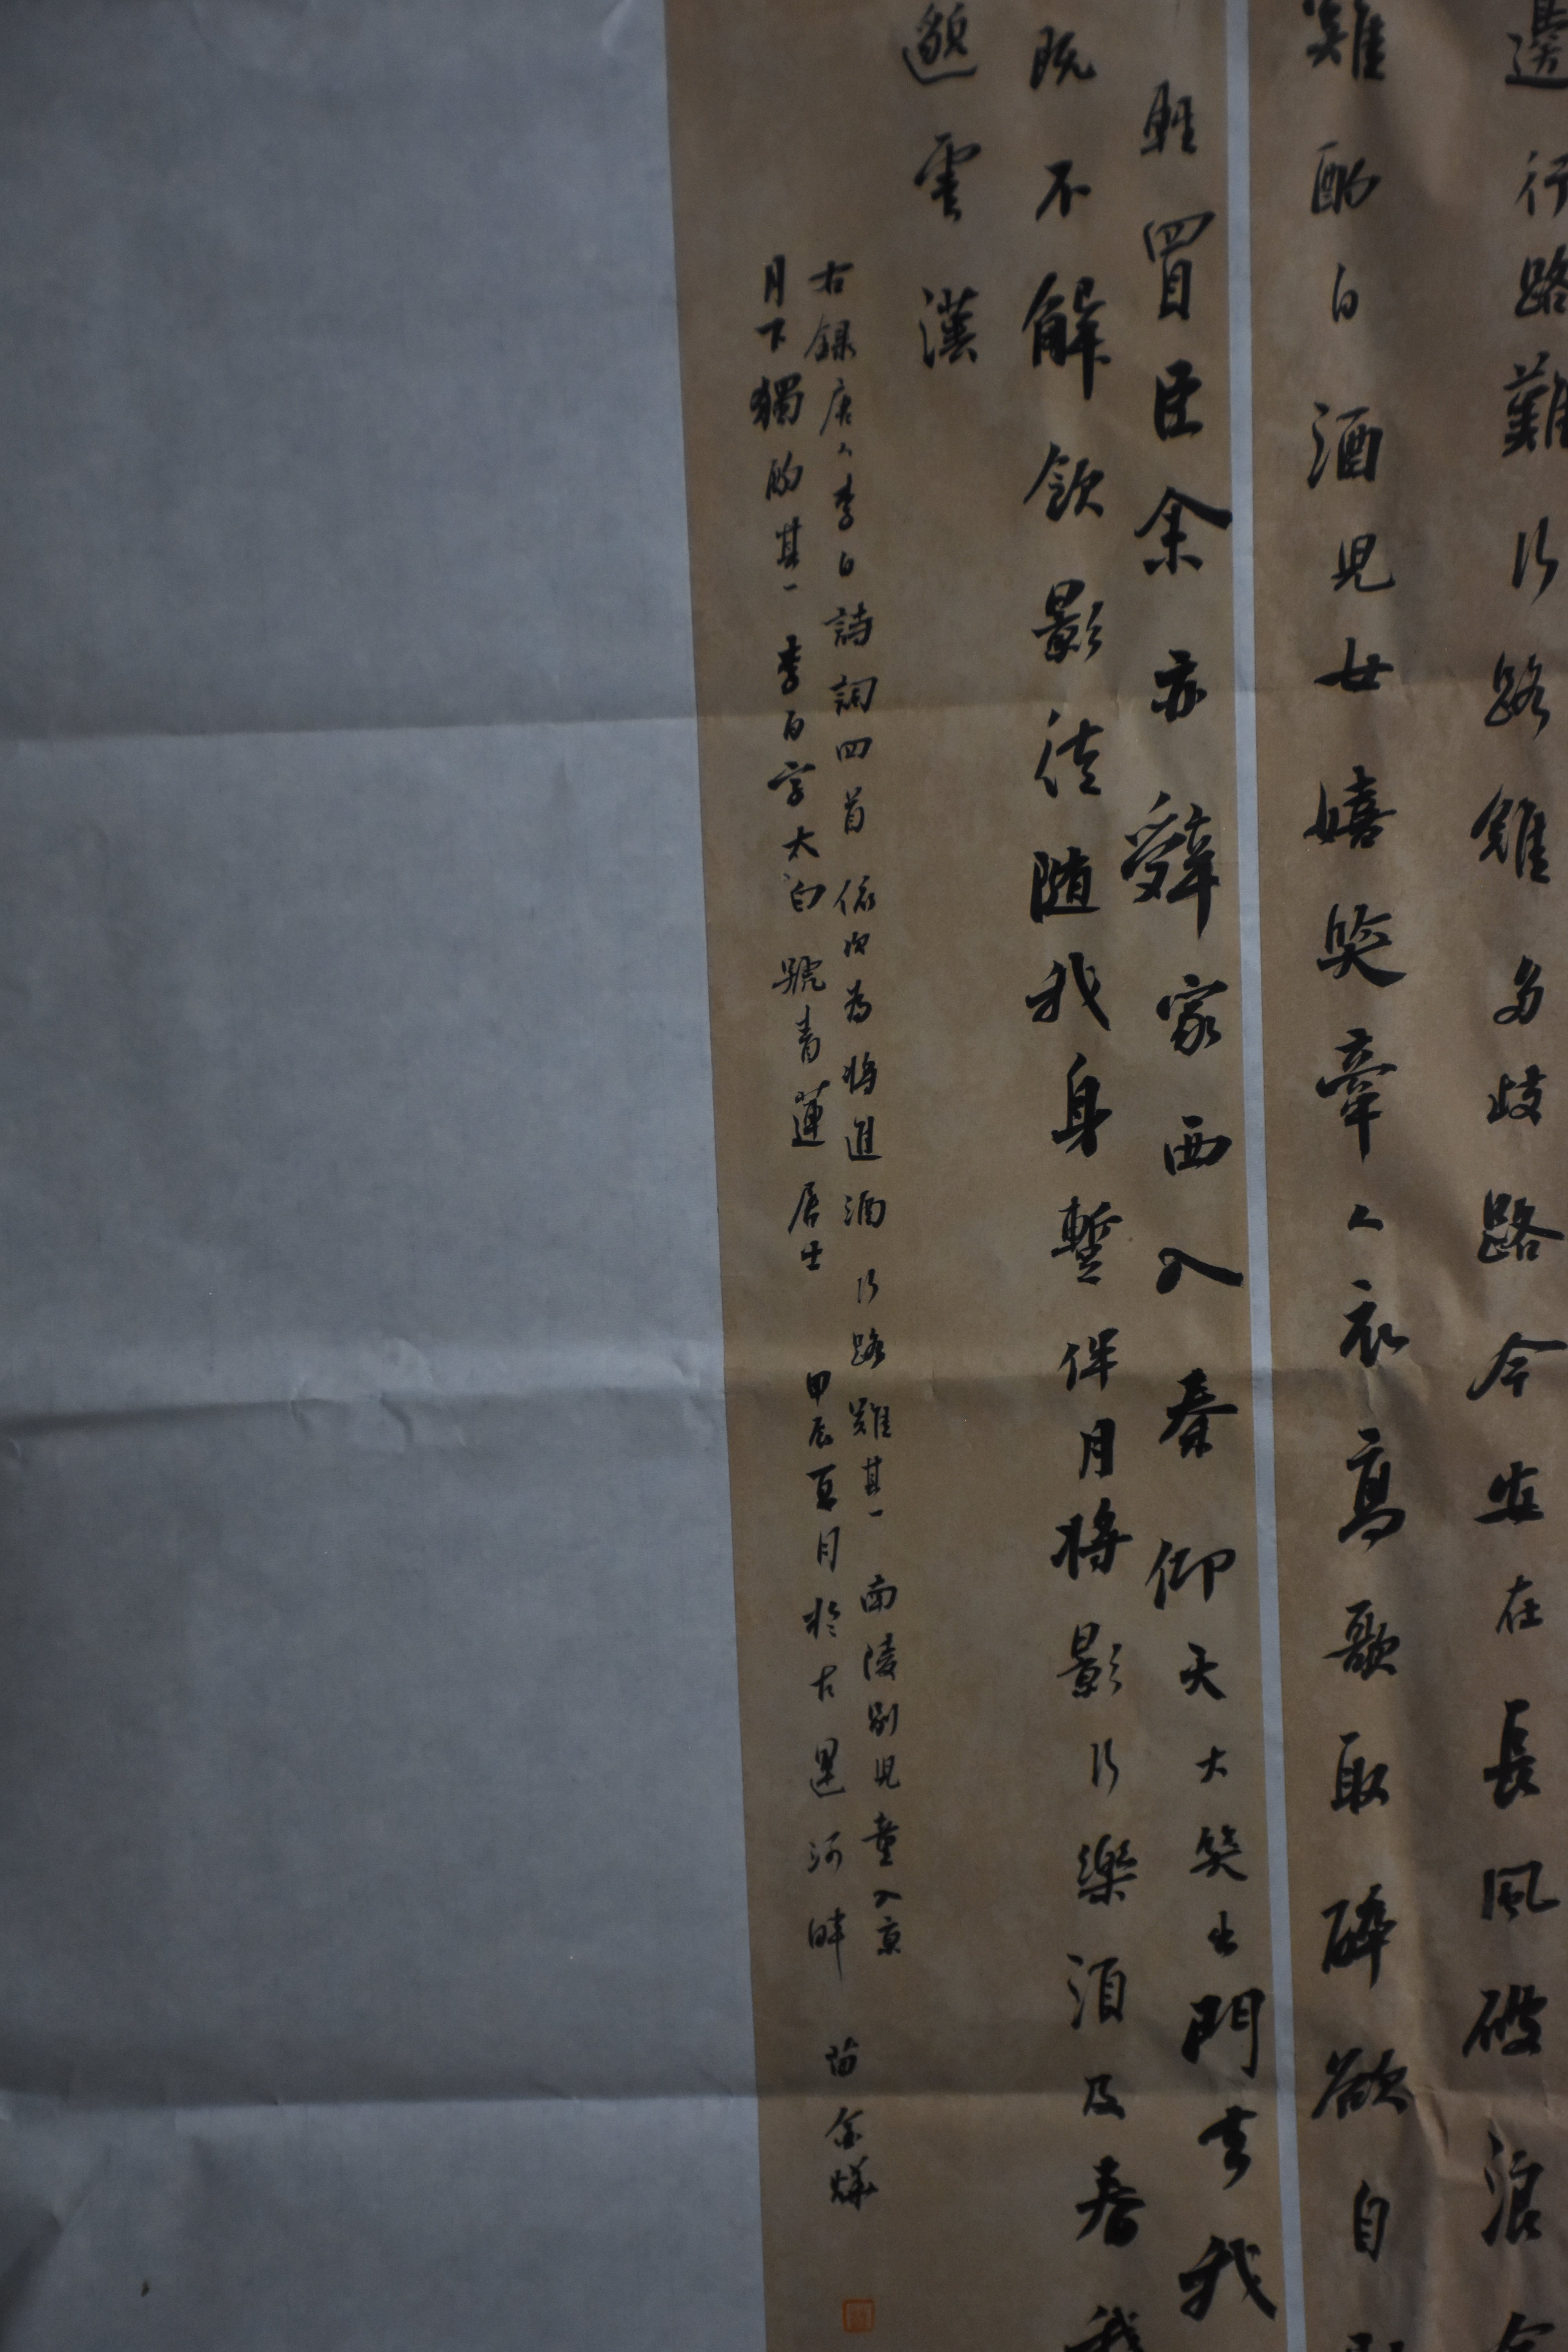 邊行路難行路難多歧路今安在長風破浪會
難酌白酒兒女嬉笑牽人衣高歌取醉欲自
輕買臣余亦辭家西入秦仰天大笑出門去我
既不解飲影徒隨我身暫伴月將影行樂須及春我
邈雲漢
右録唐人李白詩詞四首 依次為將進酒 行路難其一 南陵別兒童入京
月下獨酌其一 李白字太白 號青蓮居士 甲辰夏月於古運河畔 苗